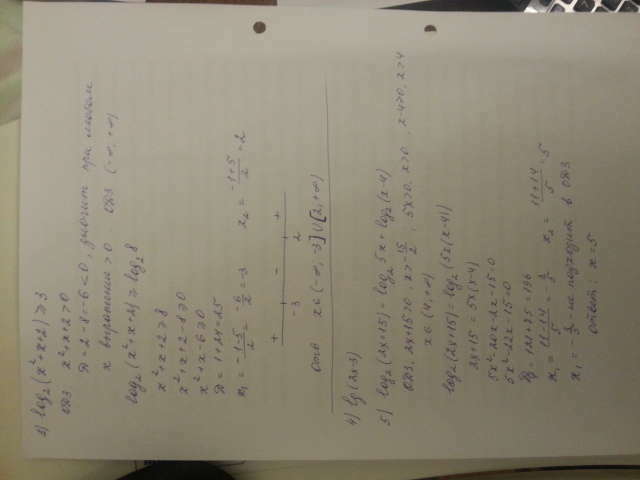 3) log₂(x²+x+2) ≥ 3
ОДЗ x²+x+2>0
D = 2-8=-6<0, значит при любом
x выражение >0 ОДЗ (-∞, +∞)
log₂(x²+x+2) ≥ log₂8
x²+x+2 ≥ 8
x²+x+2-8 ≥ 0
x²+x-6 ≥ 0
D = 1+24=25
x₁ = (-1-5)/2 = -6/2 = -3 x₂ = (-1+5)/2 = 2
+ - +
-3 2
x∈(-∞, -3]∪[2, +∞)
4) lg(2x-
5) log₂(2x+15) = log₂5x + log₂(x-4)
ОДЗ: 2x+15>0, x>-15/2, 5x>0, x>0, x-4>0, x>4
x∈(4, +∞)
log₂(2x+15) = log₂(5x(x-4))
2x+15 = 5x(x-4)
5x²-20x-2x-15=0
5x²-22x-15=0
x₂ = (11+14)/5 = 5
не подходит в ОДЗ
Ответ: x=5